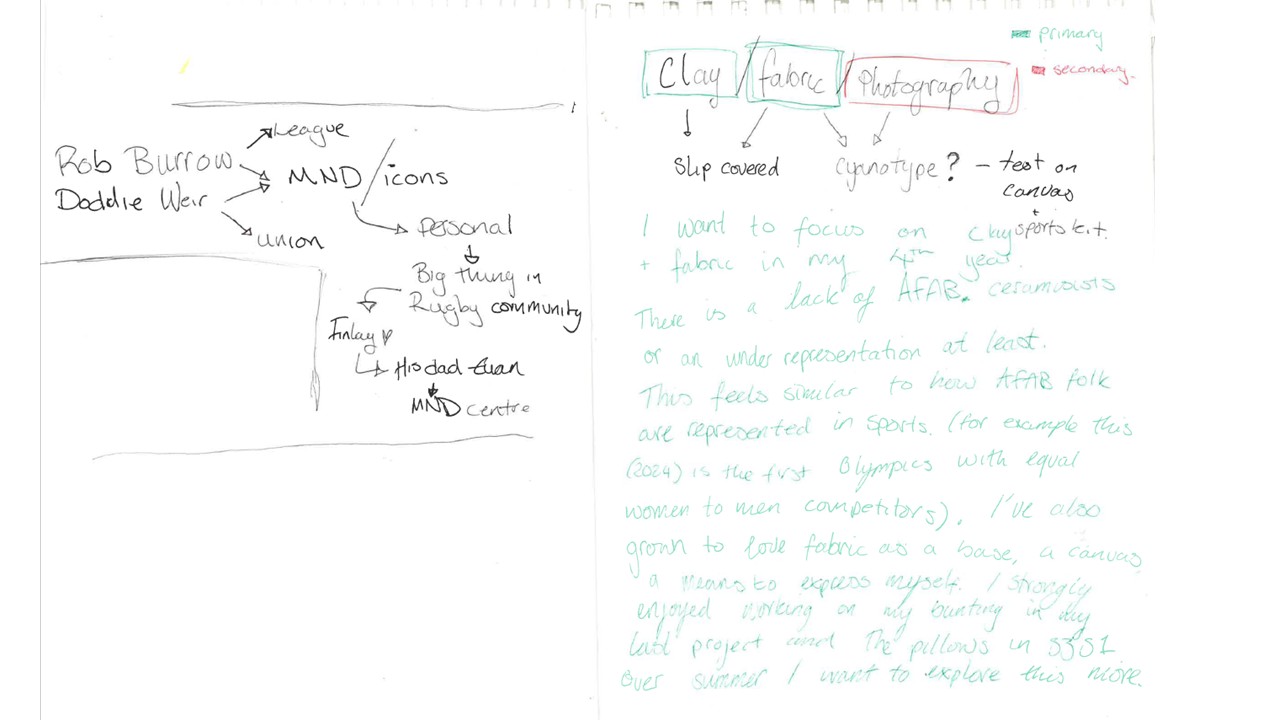 League
Rob Burrow
MND / icons
Doddie Weir
union
Personal
Big thing in
Rugby community
Finlay
His dad Euan
MND centre
primary
secondary.
Clay / fabric / Photography
Slip covered
Cyanotype? - test on
canvas
+
sports kit.
I want to focus on clay
+ fabric in my 4th year.
There is a lack of AFAB. ceramisists
or an under representation at least.
This feels similar to how AFAB folk
are represented in sports. (for example this
(2024) is the first Olympics with equal
women to men competitors). I've also
grown to love fabric as a base, a canvas,
a means to express myself. I strongly
enjoyed working on my bunting in my
last project and The pillows in S3S1
Over summer I want to explore this more.